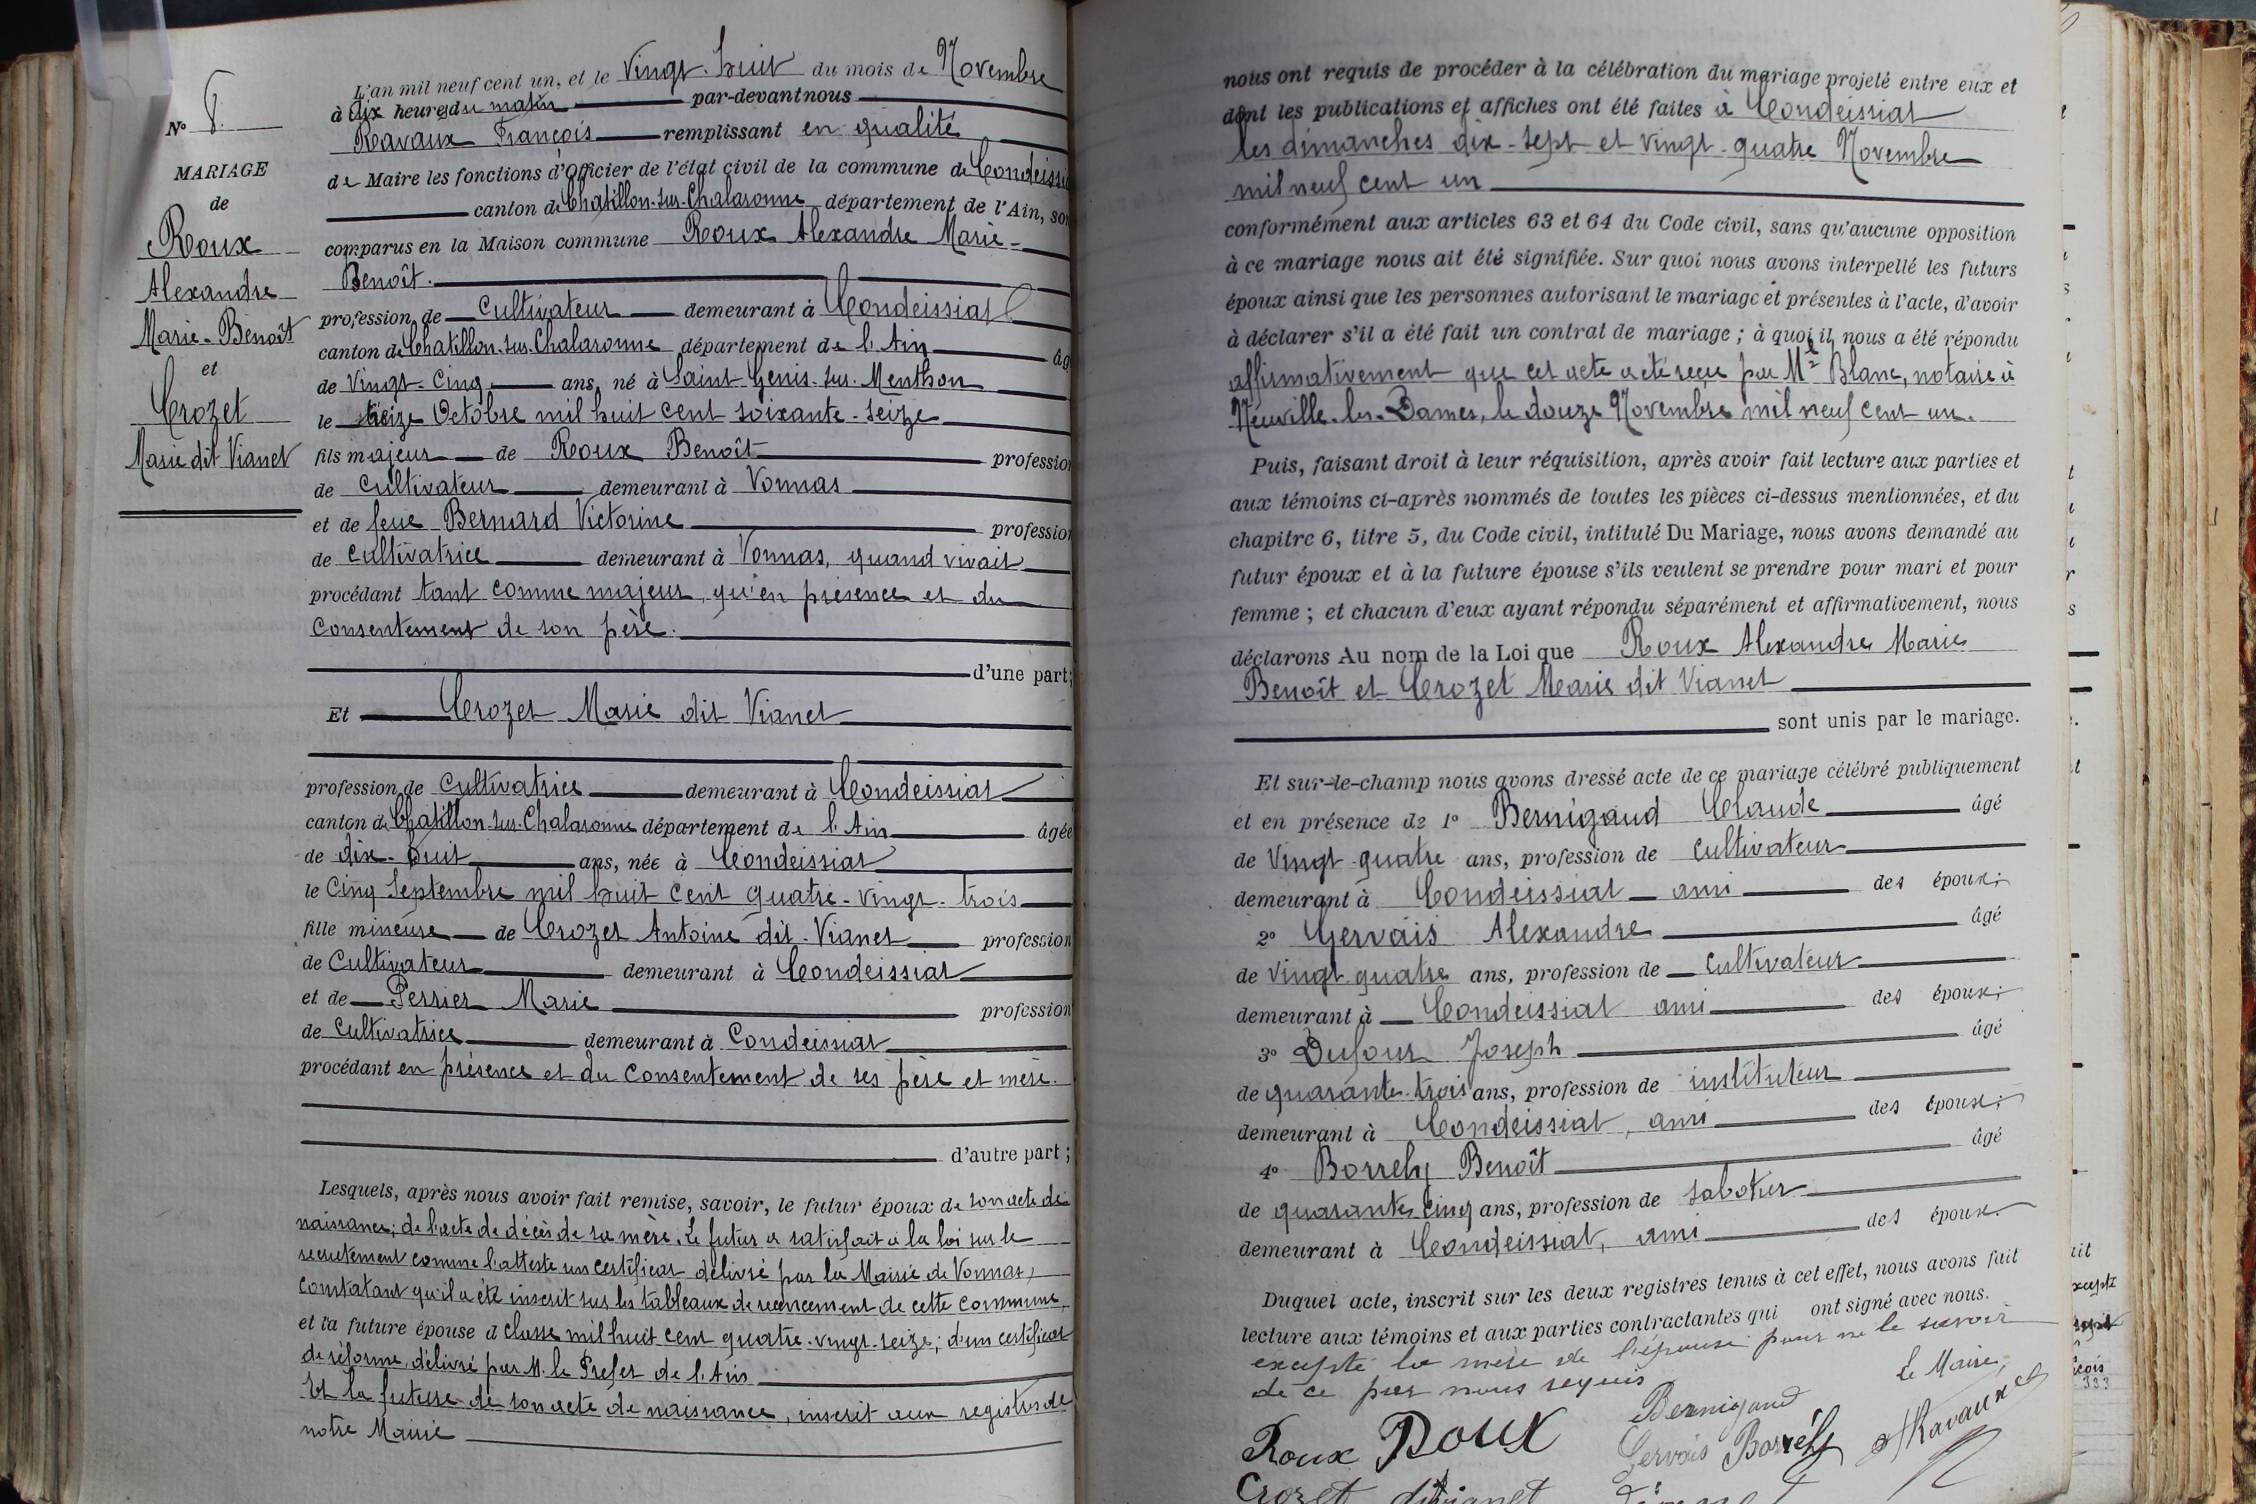 N° 8.
MARIAGE
de
Roux
Alexandre
Marie-Benoît
et
Crozet
Marie dit Vianet
L'an mil neuf cent un, et le Vingt-huit du mois de Novembre
à dix heures du matin par-devant nous
Ravaux François remplissant en qualité
de Maire les fonctions d'Officier de l'état civil de la commune de Condeissiat
canton de Chatillon-sur-Chalaronne département de l'Ain, son
comparus en la Maison commune Roux Alexandre Marie-
Benoît.
profession de Cultivateur demeurant à Condeissiat
canton de Chatillon-sur-Chalaronne département de l'Ain âg
de Vingt-Cinq ans, né à Saint-Genis-sur-Menthon
le Octobre mil huit cent soixante-seize
fils majeur de Roux Benoît profession
de Cultivateur demeurant à Vonnas
et de feue Bernard Victorine profession
de Cultivatrice demeurant à Vonnas, quand vivait
procédant tant comme majeur, qu'en présence et du
Consentement de son père.
d'une part;
Et Crozet Marie dit Vianet
profession de Cultivatrice demeurant à Condeissiat
canton de Chatillon-sur-Chalaronne département de l'Ain âgée
de dix-huit ans, née à Condeissiat
le Cinq Septembre mil huit Cent quatre-vingt-trois
fille mineure de Crozet Antoine dit-Vianet profession
de Cultivateur demeurant à Condeissiat
et de Perrier Marie profession
de Cultivatrice demeurant à Condeissiat
procédant en présence et du Consentement de ses père et mère.
d'autre part;
Lesquels, après nous avoir fait remise, savoir, le futur époux de son acte de
naissance; de l'acte de décès de sa mère. Le futur a satisfait à la loi sur le
recrutement comme l'atteste un certificat délivré par la Mairie de Vonnas,
Constatant qu'il a été inscrit sur les tableaux de recensement de cette Commune,
et la future épouse d classe mil huit cent quatre-vingt-seize; d'un certificat
de réforme, délivré par M. le Préfet de l'Ain
Et la future de son acte de naissance, inscrit aux registres de
notre Mairie
nous ont requis de procéder à la célébration du mariage projeté entre eux et
dont les publications et affiches ont été faites à Condeissiat
les dimanches dix-sept et vingt-quatre Novembre
mil neuf cent un
conformément aux articles 63 et 64 du Code civil, sans qu'aucune opposition
à ce mariage nous ait été signifiée. Sur quoi nous avons interpellé les futurs
époux ainsi que les personnes autorisant le mariage et présentes à l'acte, d'avoir
à déclarer s'il a été fait un contrat de mariage; à quoi il nous a été répondu
affirmativement que cet acte a été reçu par Me Blanc, notaire à
Neuville-les-Dames, le douze Novembre mil neuf cent un.
Puis, faisant droit à leur réquisition, après avoir fait lecture aux parties et
aux témoins ci-après nommés de toutes les pièces ci-dessus mentionnées, et du
chapitre 6, titre 5, du Code civil, intitulé Du Mariage, nous avons demandé au
futur époux et à la future épouse s'ils veulent se prendre pour mari et pour
femme; et chacun d'eux ayant répondu séparément et affirmativement, nous
déclarons Au nom de la Loi que Roux Alexandre Marie
Benoît et Crozet Marie dit Vianet
sont unis par le mariage.
Et sur-le-champ nous avons dressé acte de ce mariage célébré publiquement
et en présence de 1° Bernigaud Claude âgé
de Vingt-quatre ans, profession de Cultivateur
demeurant à Condeissiat ami des époux;
2° Gervais Alexandre âgé
de Vingt quatre ans, profession de Cultivateur
demeurant à Condeissiat ami des époux;
3° Dufour Joseph âgé
de quarante-trois ans, profession de instituteur
demeurant à Condeissiat, ami des époux;
4° Borrely Benoît âgé
de quarante cinq ans, profession de Sabotier
demeurant à Condeissiat, ami des époux.
Duquel acte, inscrit sur les deux registres tenus à cet effet, nous avons fait
lecture aux témoins et aux parties contractantes qui ont signé avec nous.
excepté la mère de l'épouse pour ne le savoir
de ce par nous requis
Le Maire,
Bernigaud
Roux Roux Gervais Borrély Ravaux
Crozet dit vianet